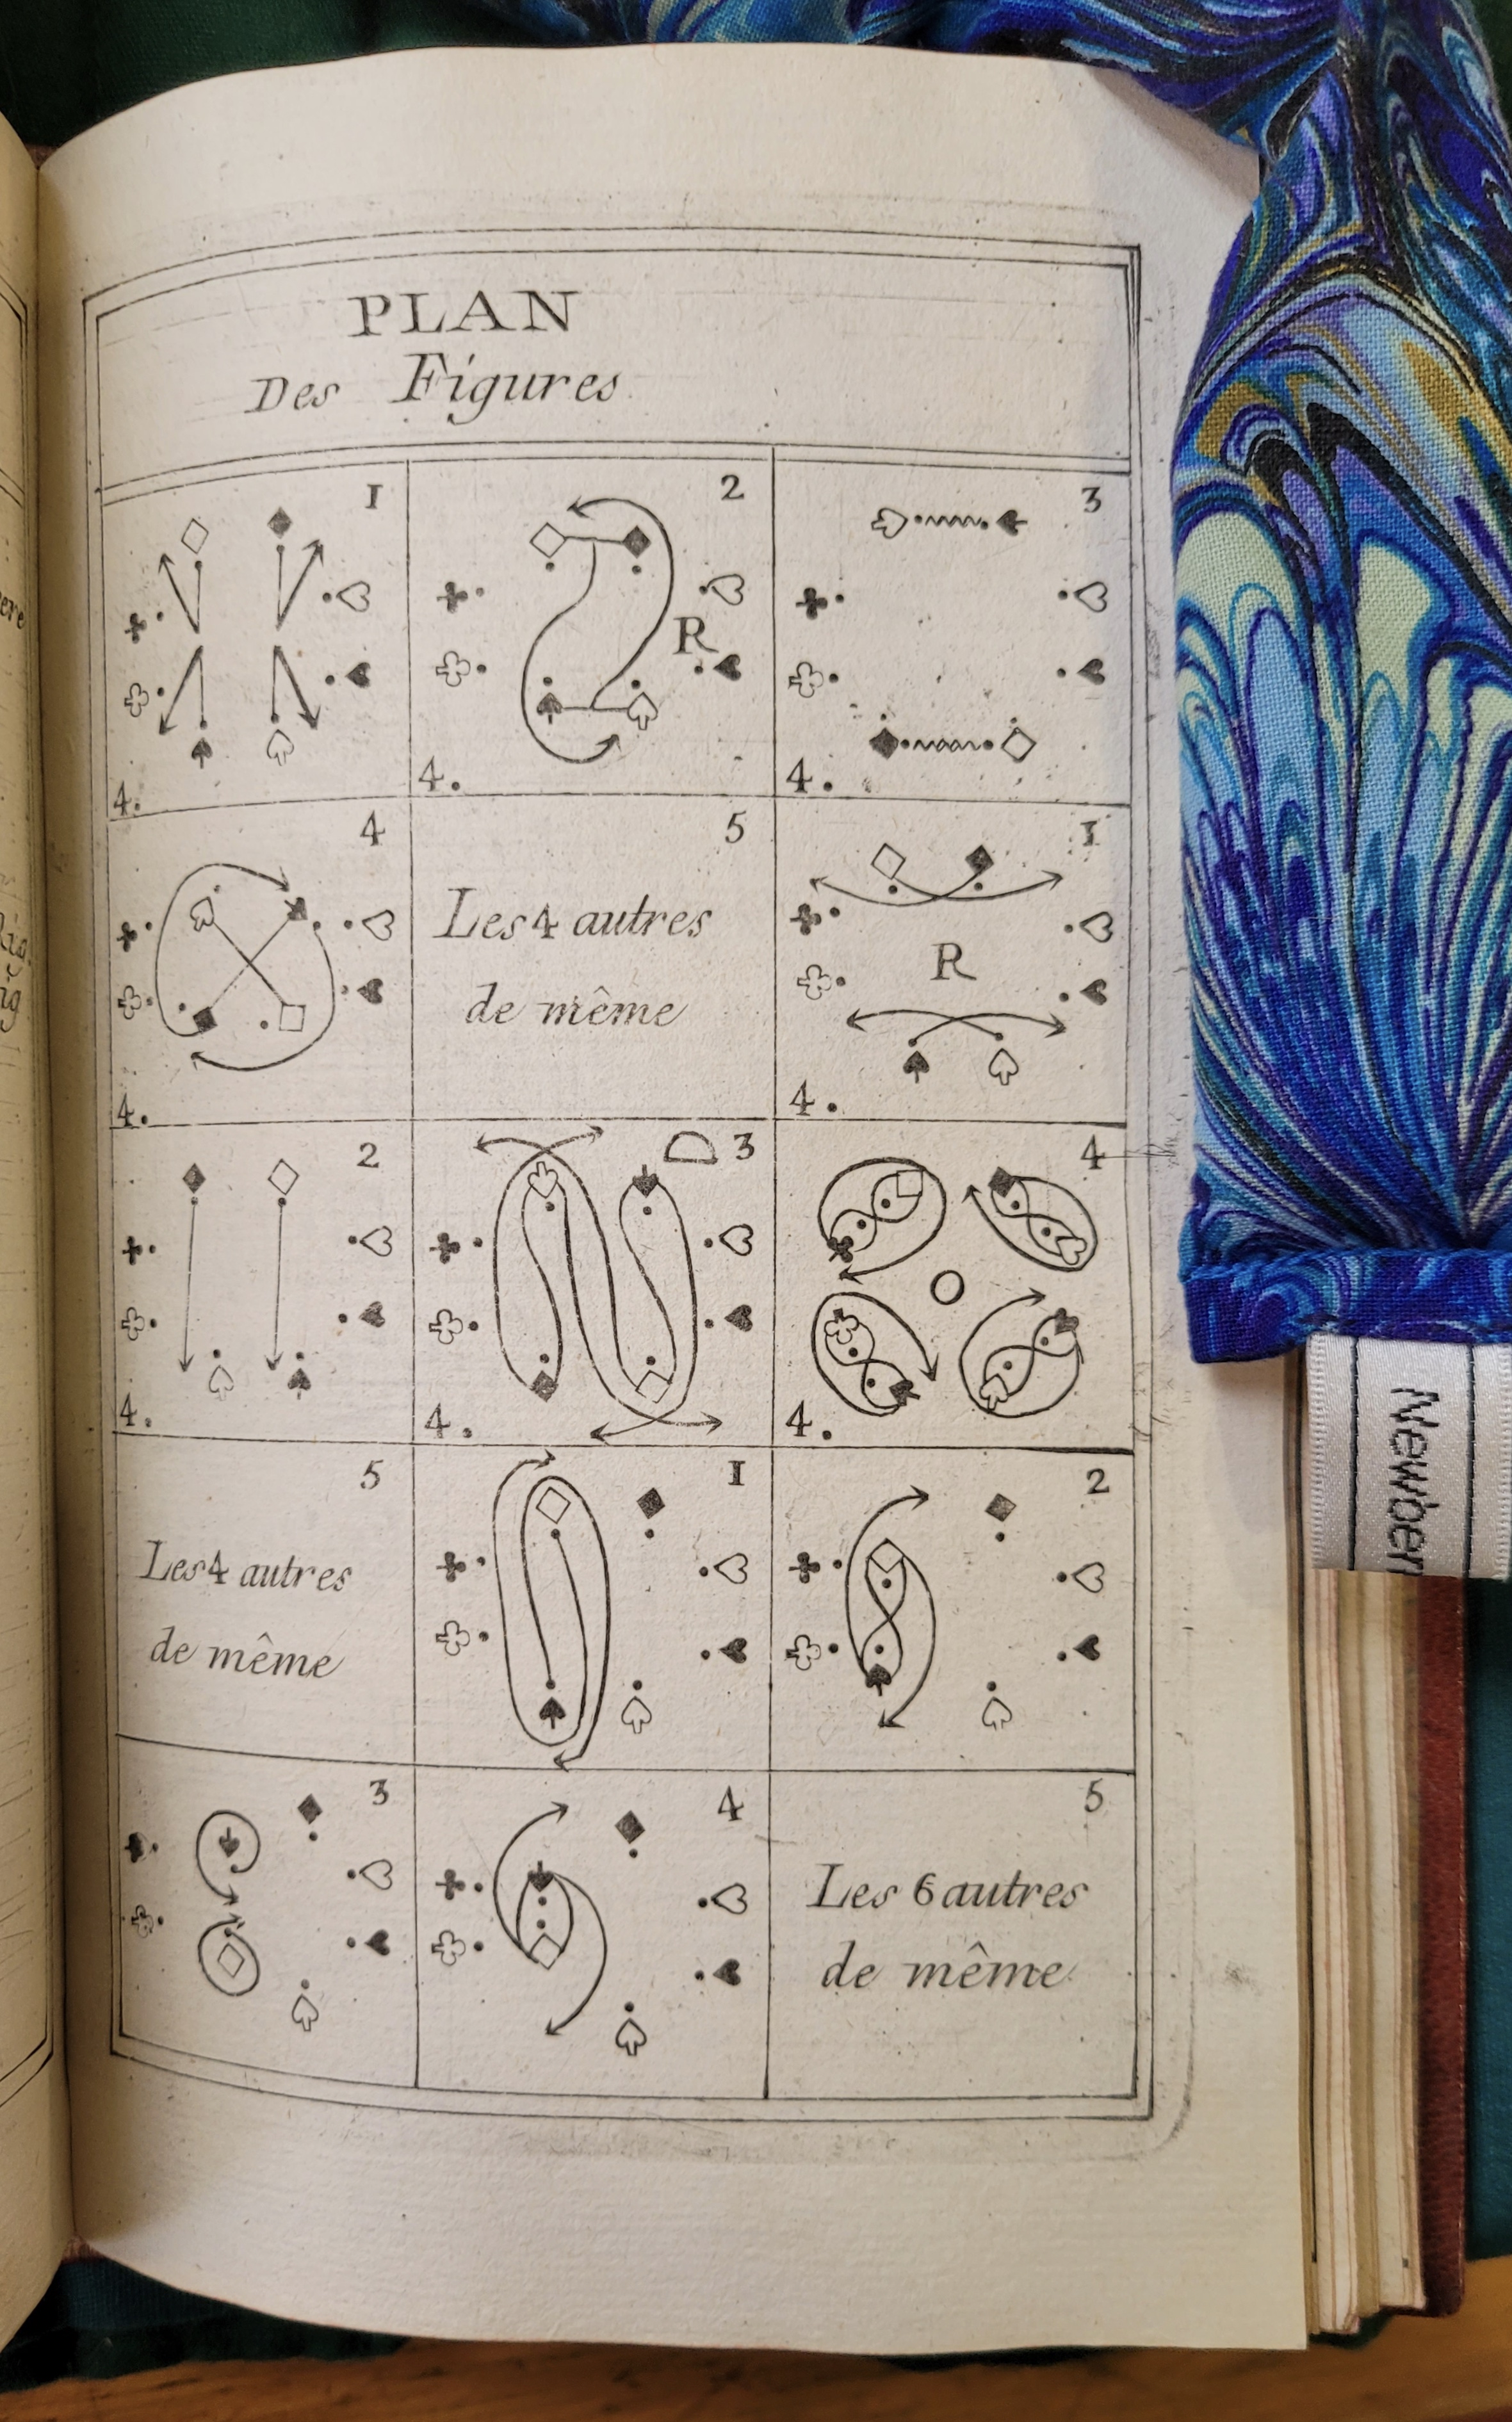 PLAN
Des Figures
1
2
3
R
4.
4.
4.
4
5
1
Les 4 autres
de même
R
4.
4.
2
3
4
O
4.
4.
4.
5
1
2
Les 4 autres
de même
3
4
5
Les 6 autres
de même